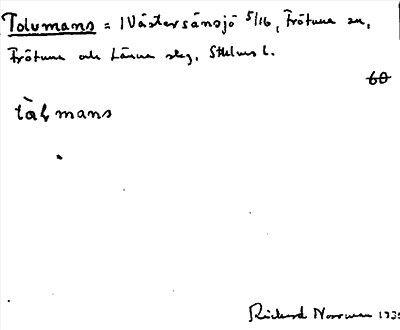 Tolvmans = 1 Västersänsjö 5/16, Frötuna sn,
Frötuna och Länna skg, Sthlms l.
60
tàlmans
Rickard Norrman 1935